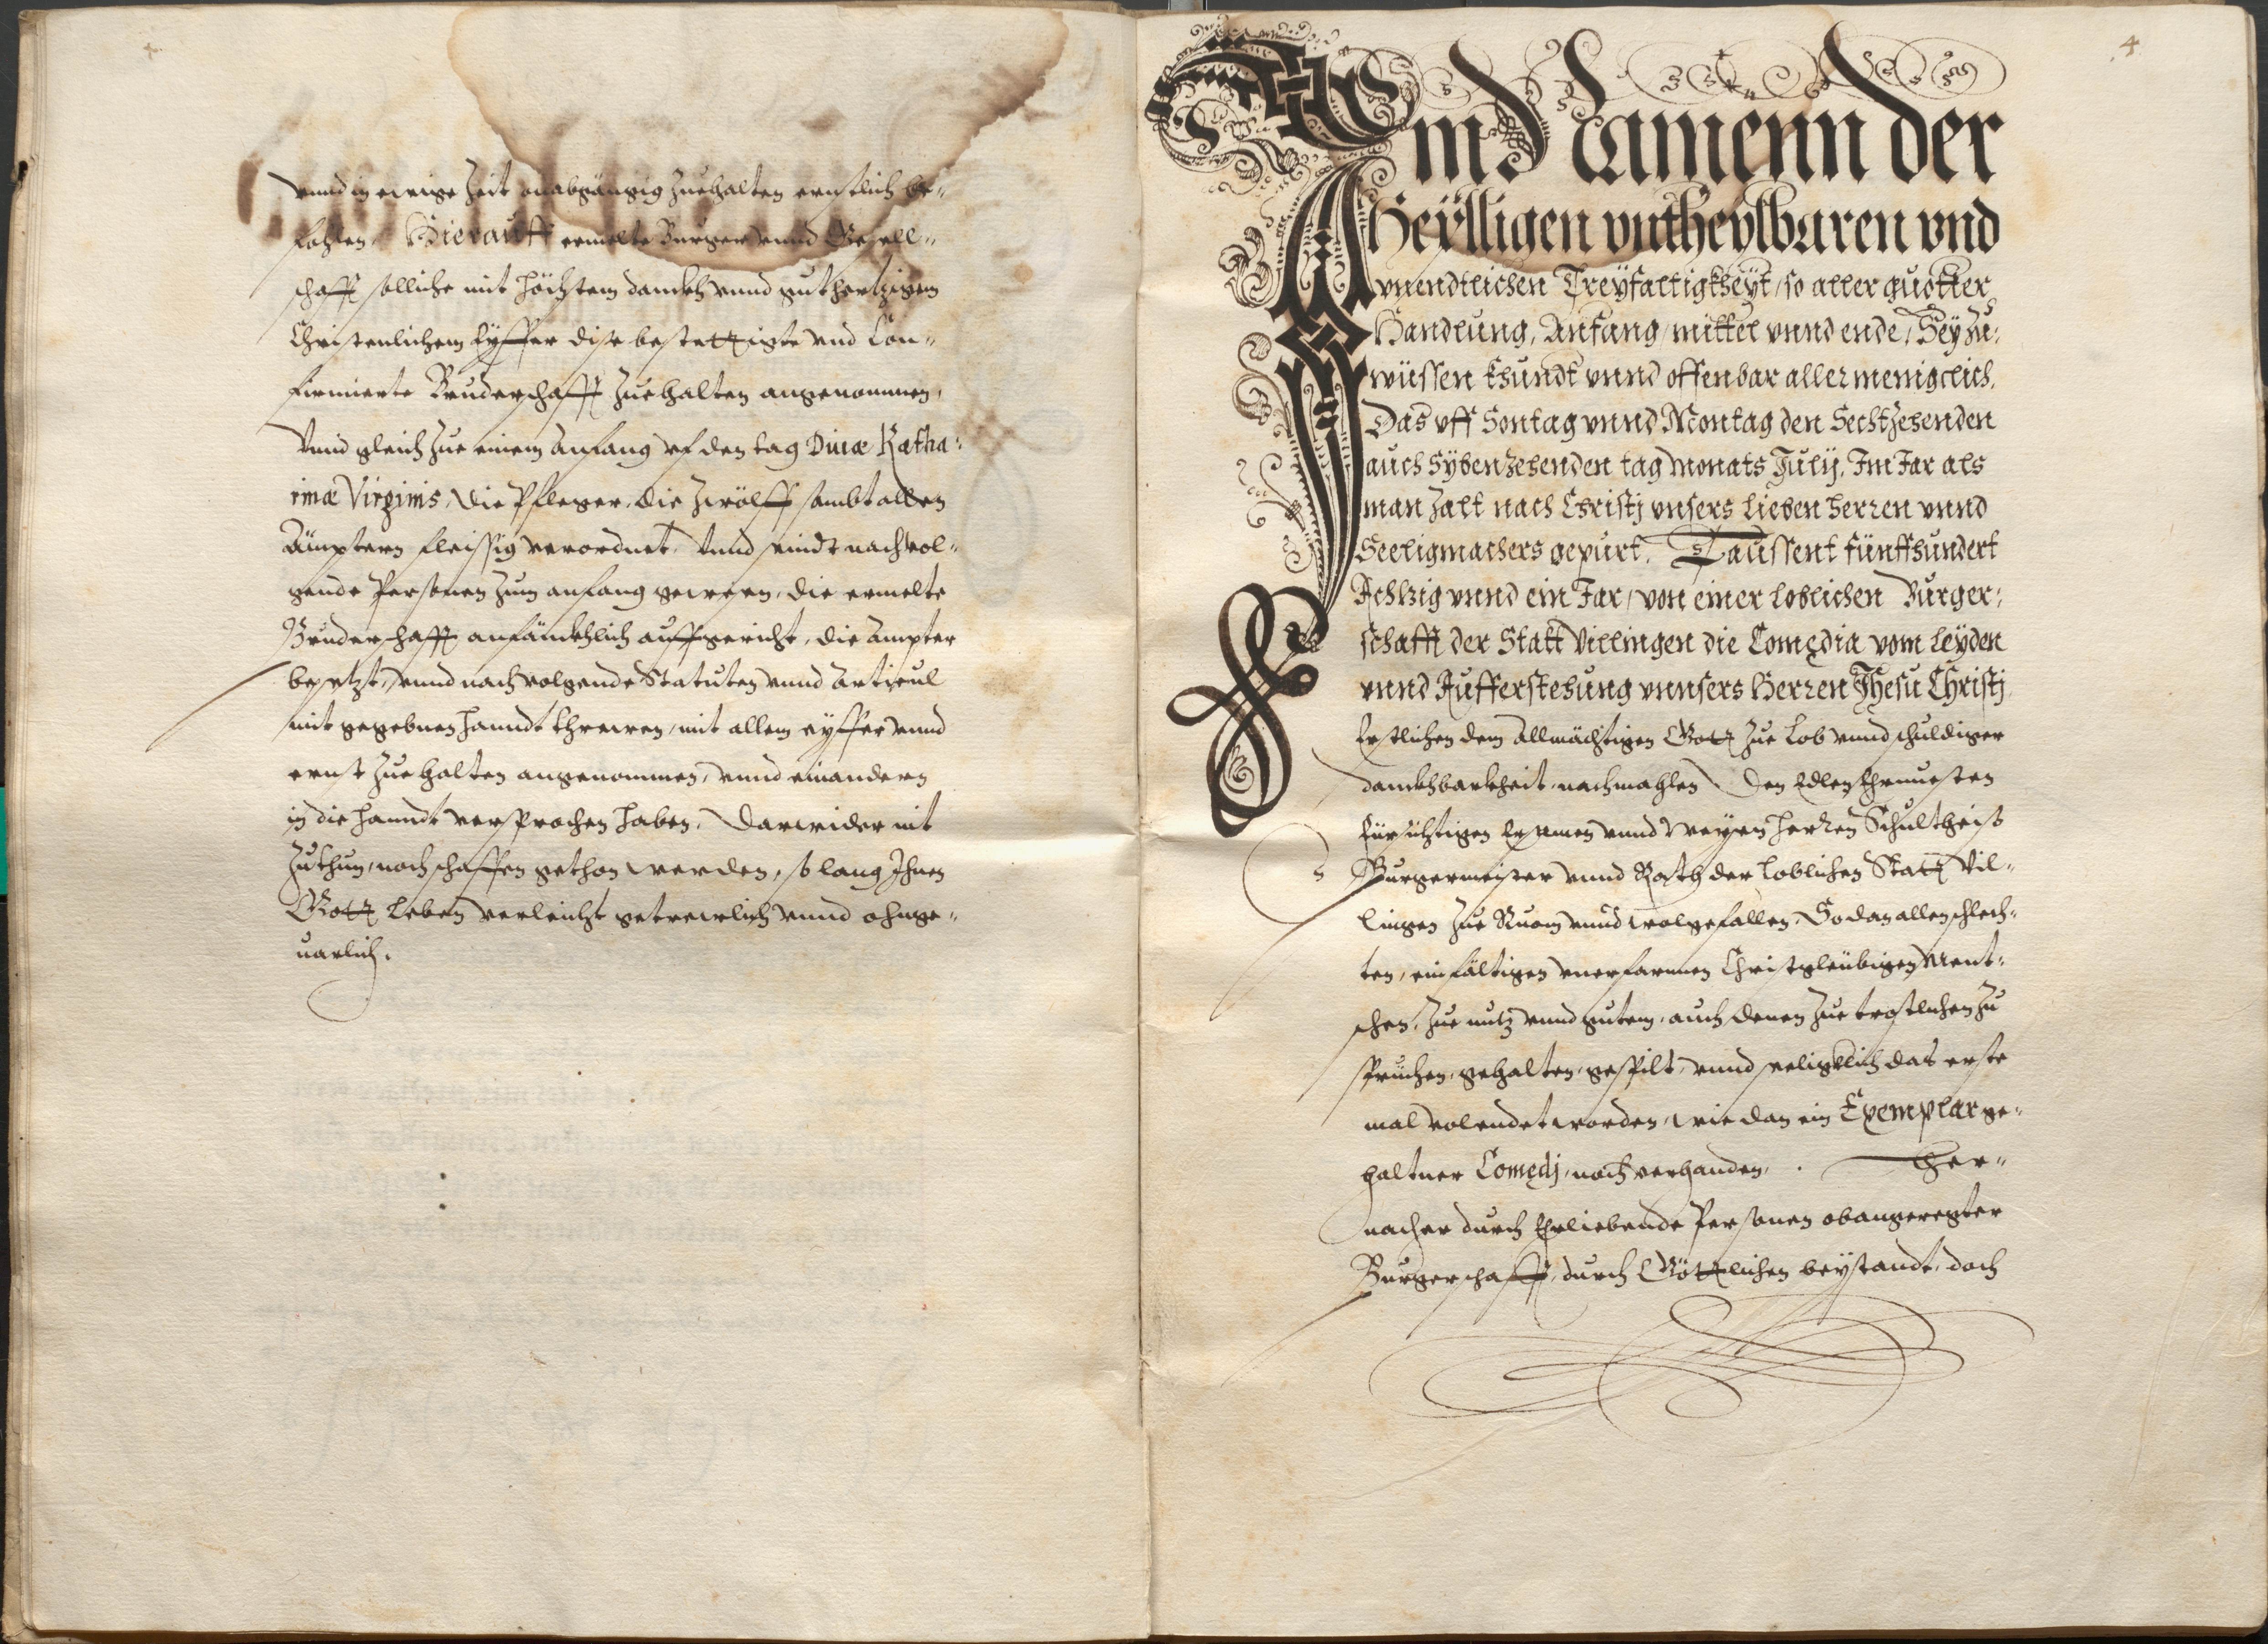 vnnd in ewige Zeit onabgängig zuehalten ernstlich be-
fohlen. Hierauff ermelte Burger vnnd Gesell-
schafft solliche mit höchstem danckh vnnd guthertzigem
Christenlichem Eyffer dise bestettigte vnd Con-
firmierte Bruderschafft zuehalten angenommen,
Vnnd gleich zue einem anfang vf den tag Diuæ Katha-
rinæ Virginis, die Pfleger, die Zwölff sambt allen
Ämptern fleissig verordnet. Vnnd seindt nachvol-
gende Personen zum anfang gewesen, die ermelte
Bruderschafft anfänckhlich auffgericht, die ämpter
besetzt, vnnd nachvolgende Statuten vnnd Articul
mit gegebnen handt threwen, mit allem eyffer vnnd
ernst zuehalten angenommen, vnnd einandern
in die hanndt versprochen haben, Darwider nit
zuthun, noch schaffen gethon werden, so lang Ihnen
Gott leben verleicht getrewlich vnnd ohnge-
uarlich.
4
Im Namenn der
Heÿlligen vntheylbaren vnd
vnendtlichen Treÿfaltigkheÿt, so aller guotter
Handlung, Anfang, mittel vnnd ende, Seÿ zu-
wüssen khundt vnnd offenbar aller menigclich,
Das vff Sontag vnnd Montag den Sechtzehenden
auch Sÿbenzehenden tag monats Julij, Im Jar als
man zalt nach Christj vnsers lieben herren vnnd
Seeligmachers gepurt. Taussent fünffhundert
Achtzig vnnd ein Jar, von einer loblichen Burger-
schafft der Statt Villingen die Comędia vom leÿden
vnnd Aufferstehung vnnsers Herren Jhesu Christj
Erstlichen dem Allmächtigen Gott zue Lob vnnd schuldiger
danckhbarkheit, nachmahlen Den Edlen Ehrnuesten
fürsichtigen Ersamen vnnd Weysen herren Schultheis
Burgermeister vnnd Rath der loblichen Statt Vil-
lingen zue Ruom vnnd wolgefallen, So dan allen schlech-
ten, einfältigen vnerfarnnen Christgleübigen Ment-
schen, zue nutz vnnd gutem, auch denen zue trostlichen zu
sprüchen, gehalten, gespilt, vnnd seligklich das erste
mal volendet worden, wie dan ein Exemplar ge-
haltner Comędj, noch verhanden, . Her-
nacher durch Ehrliebende Personen obangeregter
Burgerschafft, durch Göttlichen beystandt, doch